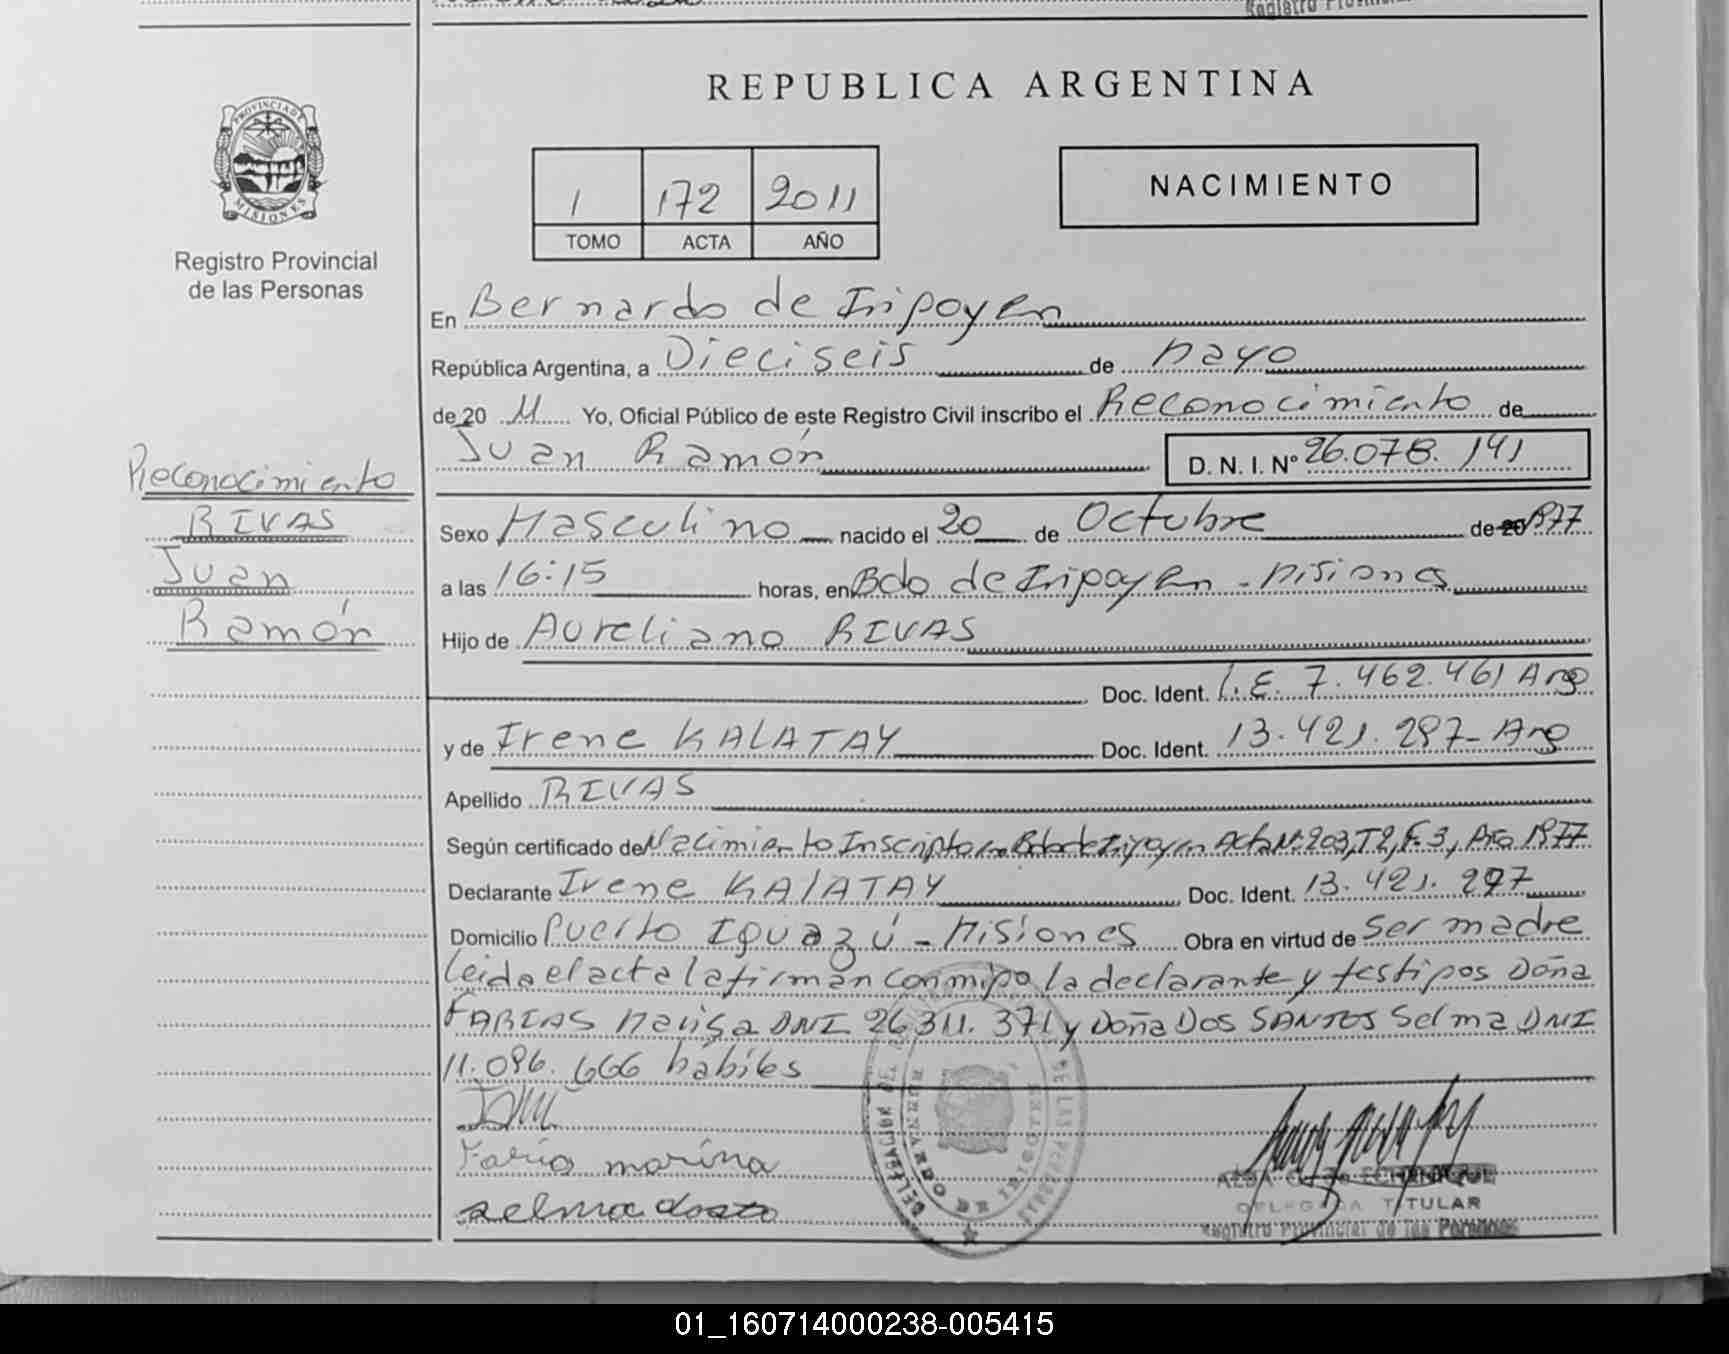 REPUBLICA ARGENTINA
PROVINCIA DE
MISIONES
Registro Provincial
de las Personas
1 172 2011
TOMO ACTA AÑO
NACIMIENTO
En Bernardo de Irigoyen
República Argentina, a Dieciseis de Mayo
de 20 11 Yo, Oficial Público de este Registro Civil inscribo el Reconocimiento de
Juan Ramón D. N. I. Nº 26.078.141
Reconocimiento
RIVAS
Juan
Ramón
Sexo Masculino nacido el 20 de Octubre de 1977
a las 16:15 horas, en Bdo de Irigoyen - Misiones
Hijo de Aureliano RIVAS
Doc. Ident. L.E. 7.462.461 Arg
y de Irene KALATAY Doc. Ident. 13.421.297- Arg
Apellido RIVAS
Según certificado de Nacimiento Inscripto en Bdo de Irigoyen Acta Nº 203, T2, F. 3, Año 1977
Declarante Irene KALATAY Doc. Ident. 13.421.297
Domicilio Puerto Iguazú - Misiones Obra en virtud de ser madre
leida el acta la firman conmigo la declarante y testigos Doña
FARIAS Marisa DNI 26311.371 y Doña DOS SANTOS Selma DNI
11.096.666 hábiles
Faria marina
selma dosto
DELEGADA TITULAR
Registro Provincial de las Personas
01_160714000238-005415